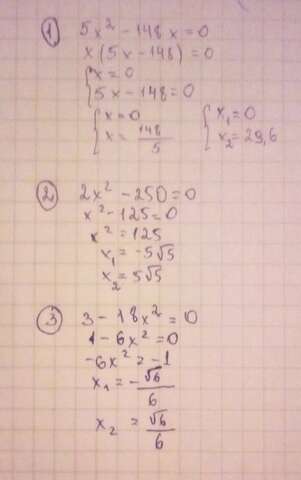 ① 5x² - 148x = 0
x(5x - 148) = 0
{ x = 0
{ 5x - 148 = 0
{ x = 0
{ x = 148/5
{ x₁ = 0
{ x₂ = 29,6
② 2x² - 250 = 0
x² - 125 = 0
x² = 125
x₁ = -5√5
x₂ = 5√5
③ 3 - 18x² = 0
1 - 6x² = 0
-6x² = -1
x₁ = -√6/6
x₂ = √6/6